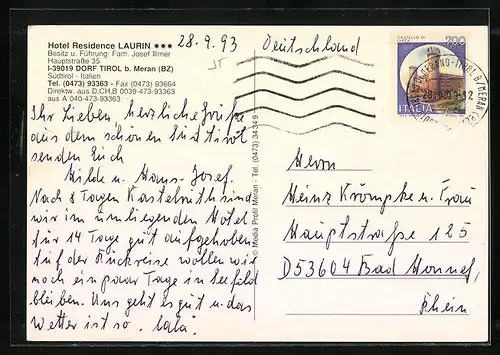 Hotel Residence LAURIN ***
Besitz u. Führung: Fam. Josef Illmer
Hauptstraße 35
I-39019 DORF TIROL b. Meran (BZ)
Südtirol - Italien
Tel. (0473) 93363 - Fax (0473) 93664
Direktw. aus D.CH,B 0039-473-93363
aus A 040-473-93363
28.9.93
Deutschland
Ihr Lieben, herzliche Grüße
aus dem schönen Südtirol
senden Euch
Hilde u. Hans-Josef.
Nach 8 Tagen Kastelruth sind
wir im umliegenden Hotel
für 14 Tage gut aufgehoben
Auf der Rückreise wollen wir
noch ein paar Tage in Seefeld
bleiben. Uns geht es gut u. das
Wetter ist so "lala".
© Media Profil Meran - Tel. (0473) 34349
CASTELLO DI
700
ITALIA
Herrn
Heinz Krömpke u. Frau
Hauptstraße 125
D53604 Bad Honnef,
Rhein